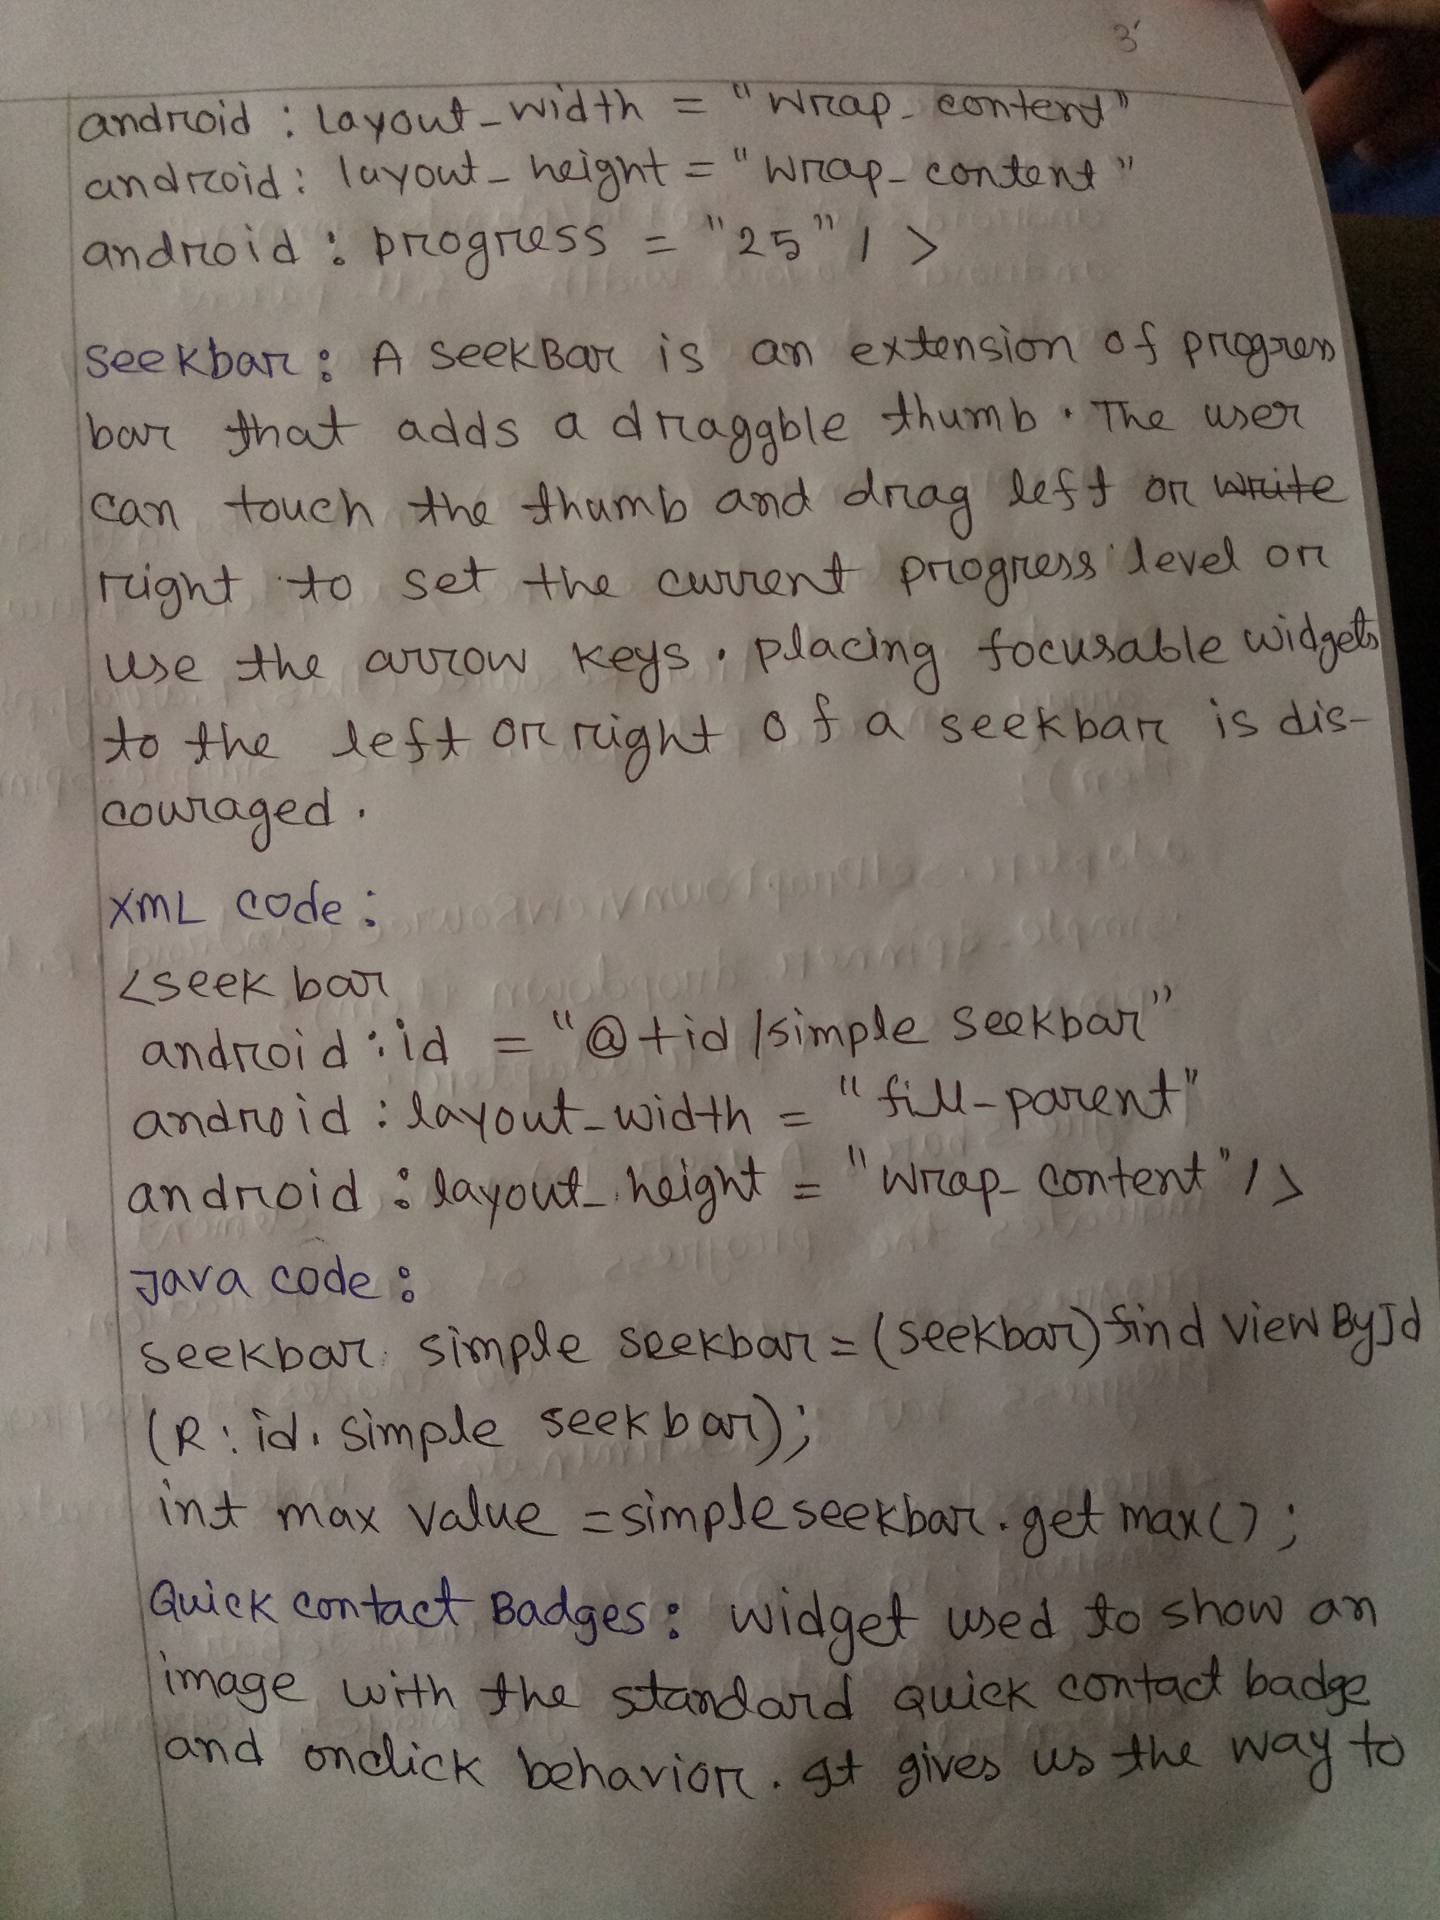 3
android : layout_width = "wrap_content"
android: layout_height = "wrap_content"
android : progress = "25" / >
seekbar : A seekBar is an extension of progress
bar that adds a draggble thumb. The user
can touch the thumb and drag left or write
right to set the current progress level or
use the arrow keys. placing focusable widgets
to the left or right of a seekbar is dis-
couraged.
XML code :
<seek bar
android : id = "@+id/simple seekbar"
android : layout_width = "fill-parent"
android : layout_height = "wrap_content" / >
Java code :
seekbar simple seekbar = (seekbar) find view ById
(R : id. simple seek bar);
int max value = simple seekbar. get max();
Quick contact Badges : widget used to show an
image with the standard quick contact badge
and onclick behavior. It gives us the way to